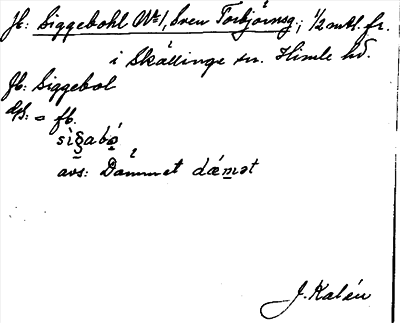 Jb: Siggebohl No 1, Sven Torbjörnsg.; 1/2 mtl. fr.
i Skällinge sn. Himle hd.
Fb: Siggebol
= fb.
sìg̱abó̱
avs: Dämmet dǽm̱ət
J. Kalén